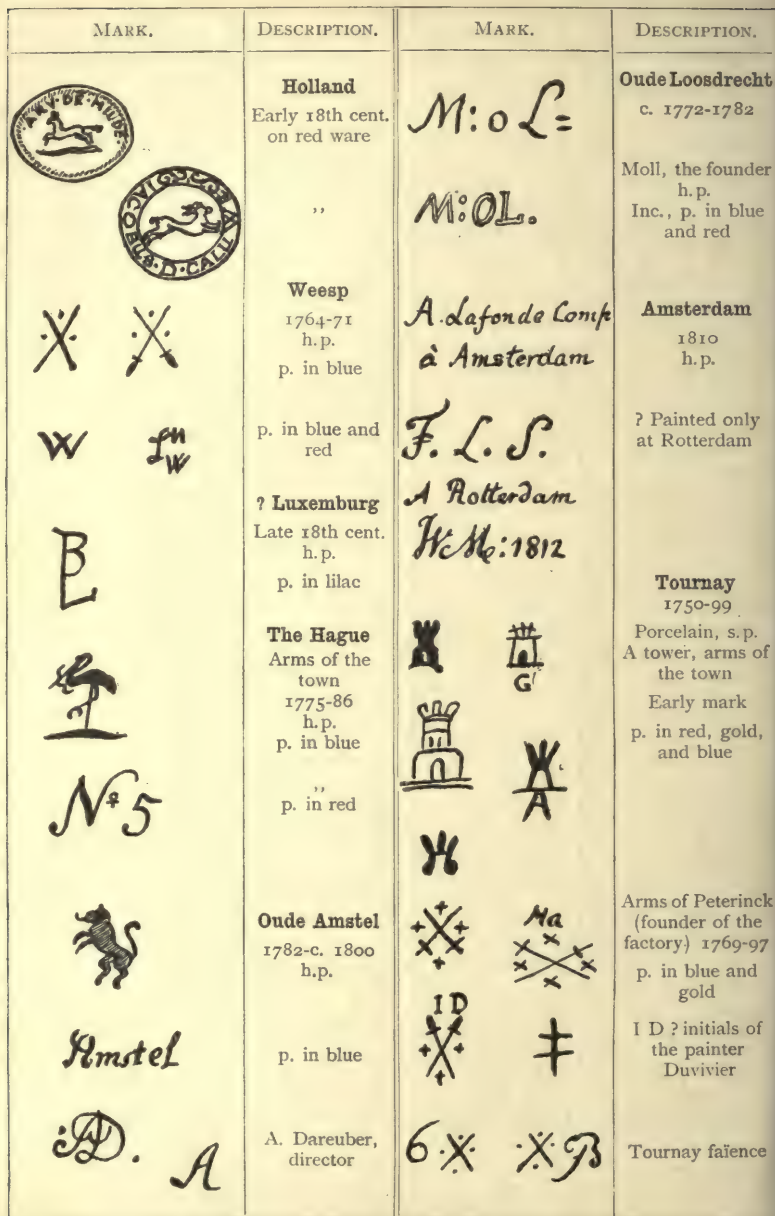 MARK.
DESCRIPTION.
ARY·DE·MILDE·
Holland
Early 18th cent.
on red ware
IACOBUS·D·CALU
,,
Weesp
1764-71
h.p.
p. in blue
W
W
p. in blue and
red
? Luxemburg
Late 18th cent.
h.p.
p. in lilac
B
L
The Hague
Arms of the
town
1775-86
h.p.
p. in blue
No 5
,,
p. in red
Oude Amstel
1782-c. 1800
h.p.
Amstel
p. in blue
AD.
A
A. Dareuber,
director
MARK.
DESCRIPTION.
M: o L=
Oude Loosdrecht
c. 1772-1782
M:OL.
Moll, the founder
h.p.
Inc., p. in blue
and red
A. Lafonde Comp
à Amsterdam
Amsterdam
1810
h.p.
F. L. S.
A Rotterdam
:1812
? Painted only
at Rotterdam
Tournay
1750-99
Porcelain, s.p.
A tower, arms of
the town
Early mark
p. in red, gold,
and blue
G
A
Ha
Arms of Peterinck
(founder of the
factory) 1769-97
p. in blue and
gold
I D
I D ? initials of
the painter
Duvivier
6
B
Tournay faïence